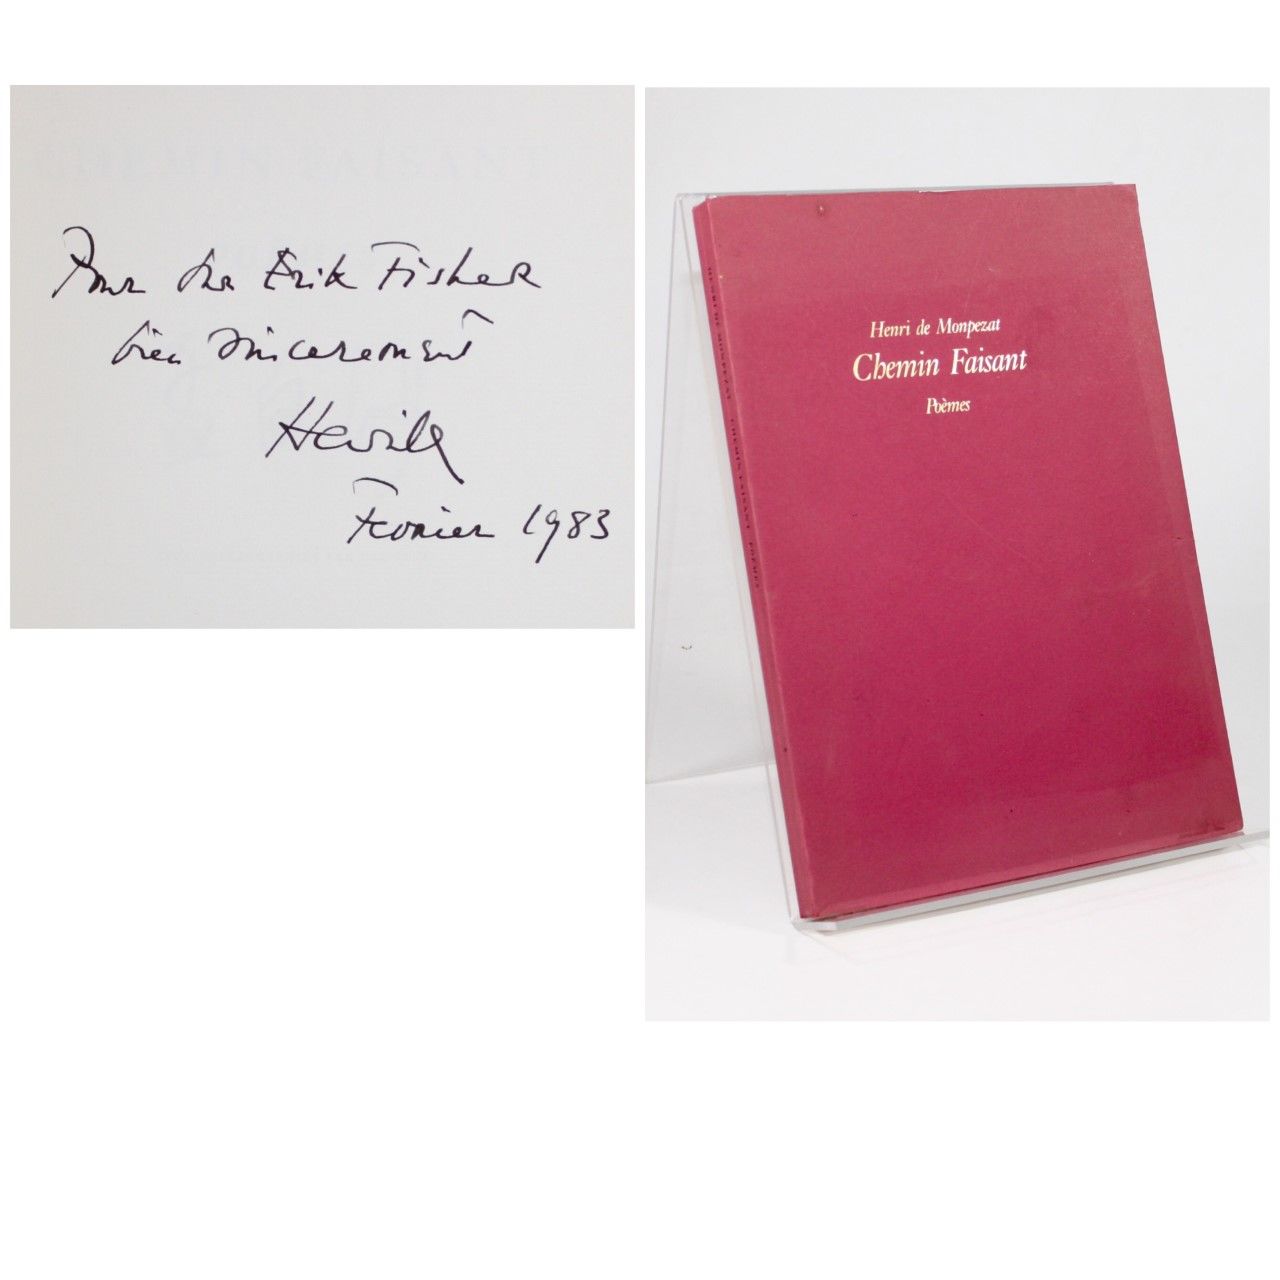 Pour Hr Erik Fisher
bien sincerement
Henrik
Fevrier 1983
CHEMIN FAISANT
Henri de Monpezat
Chemin Faisant
Poèmes
HENRI DE MONPEZAT CHEMIN FAISANT POÈMES